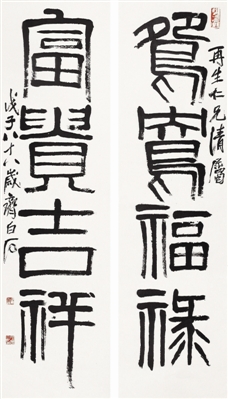 鴛鴦福祿
再生仁兄清屬
富貴吉祥
戊子八十八歲齊白石